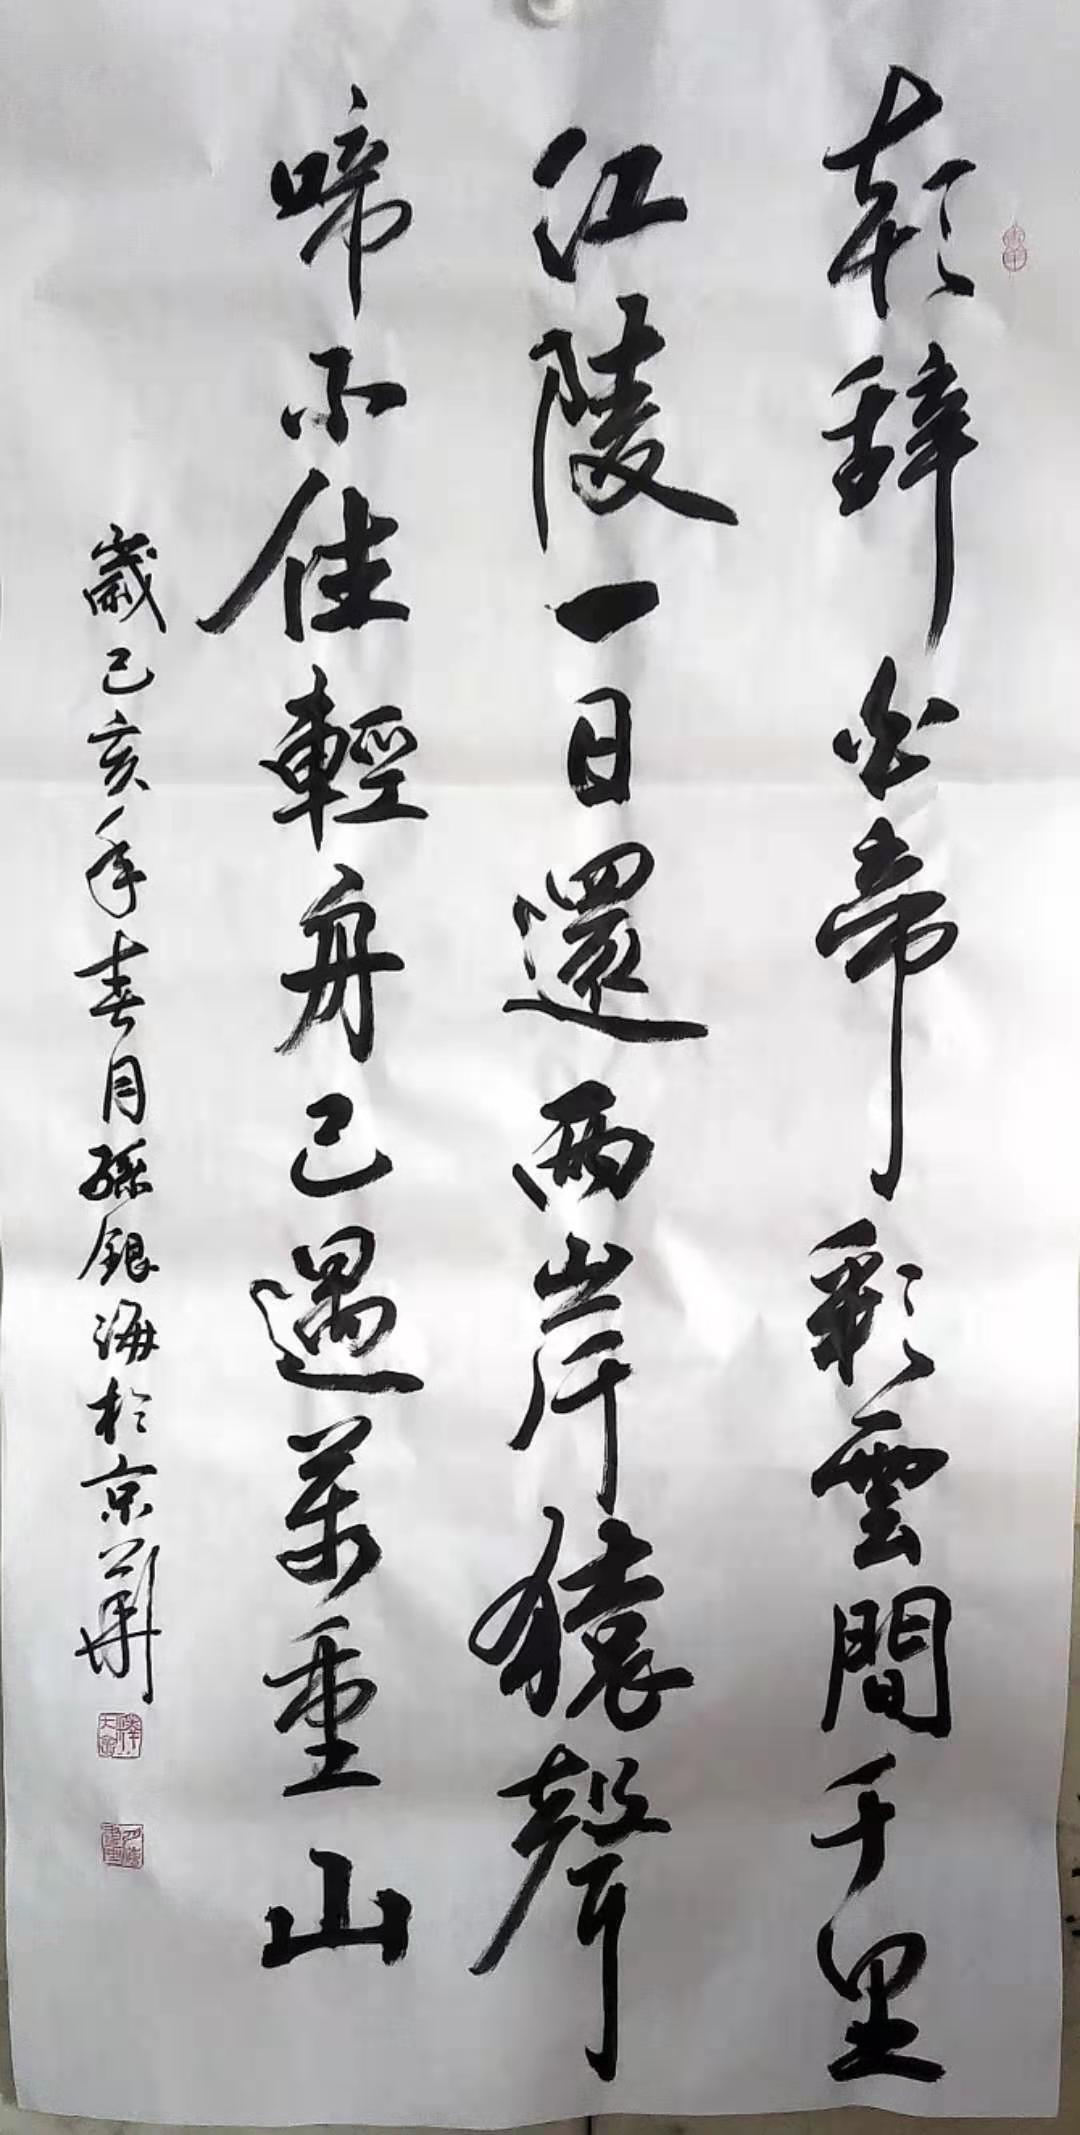 朝辞白帝彩雲間千里
江陵一日還兩岸猿聲
啼不住輕舟已過萬重山
歲己亥年春月孫銀海於京華